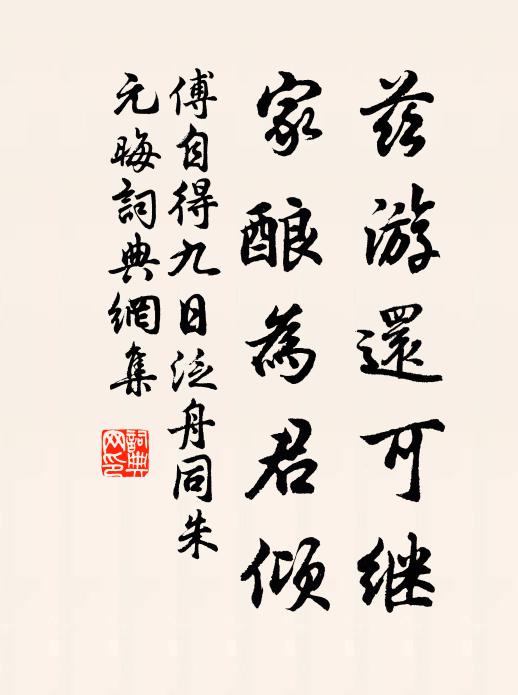 兹游還可继
家酿為君倾
傅自得九日泛舟同朱
元晦詞典網集
詞典網印